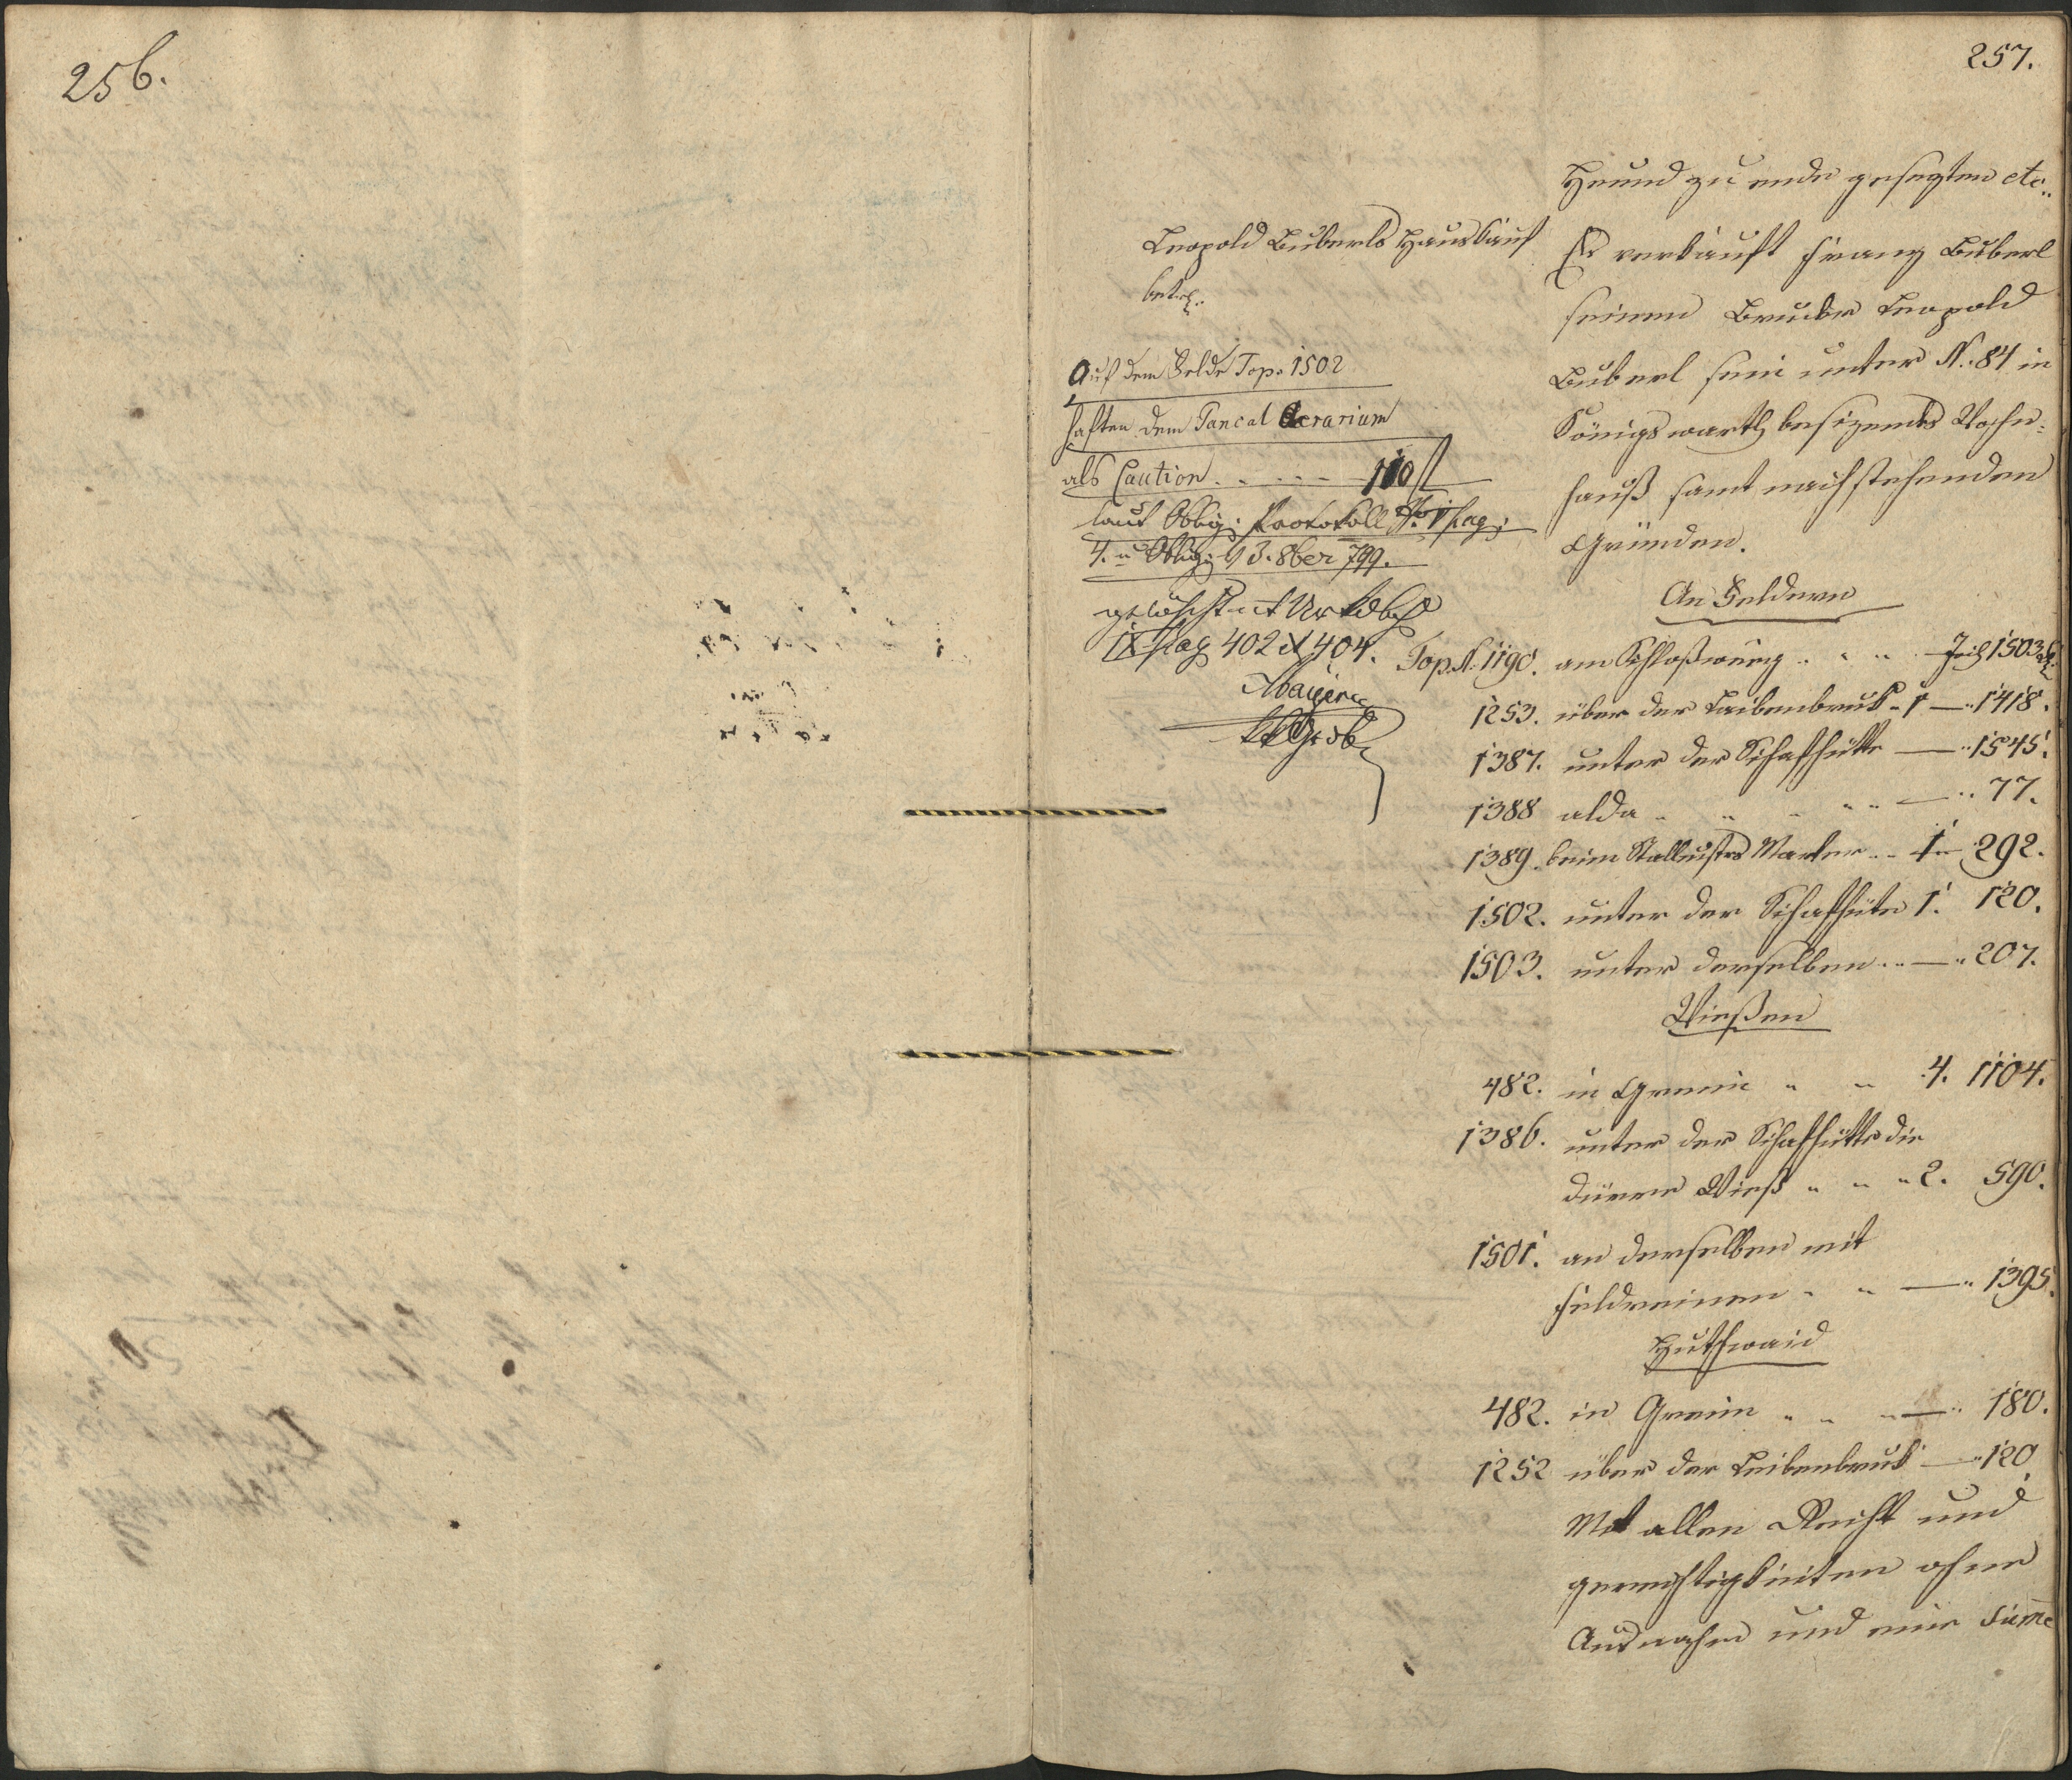 256.
257.
Heund zu ende gesezten etc..
Leopold Buberls Hauskauf
betr.
Es verkauft Franz Buberl
seinem Bruder Leopold
Buberl sein unter N. 84 in
Königswarth besizendes Wohn-
hauß samt nachstehenden
Gründen.
Auf dem Felde Top. 1502
haften dem Cancal Aerarium
als Caution . . . . . 110 fl
laut Oblig: Protokoll pag:
4. u Oblig: 13. 8ber 799.
gelöscht ut Urkdbch
IX pag 402 et 404.
An Feldern
Top. N. 1190. am Schloßweeg . . . Joch 1503
1253. über der Leibenbruk . 1 — 1418.
1387. unter der Schafhütte — 1545.
1388 alda . . . — 77.
1389. beim Marter . . 1 — 292.
1502. unter der Schafhütte 1. 120.
1503. unter derselben . . — 207.
Wießen
482. in Greim . . 4. 1104.
1386. unter der Schafhütte die
dürre Wieß . . . 2. 590.
1501. an derselben mit
Feldreinen . . — 1395.
Huthwaid
482. in Greim . . . — 180.
1252 über der Leibenbruk — 120
Mit allen Recht und
gerechtigkeiten ohne
Ausnahm und eine Sum̄e